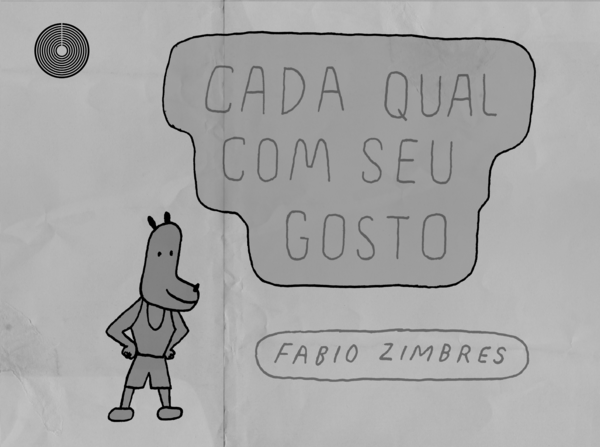 CADA QUAL
COM SEU
GOSTO
FABIO ZIMBRES